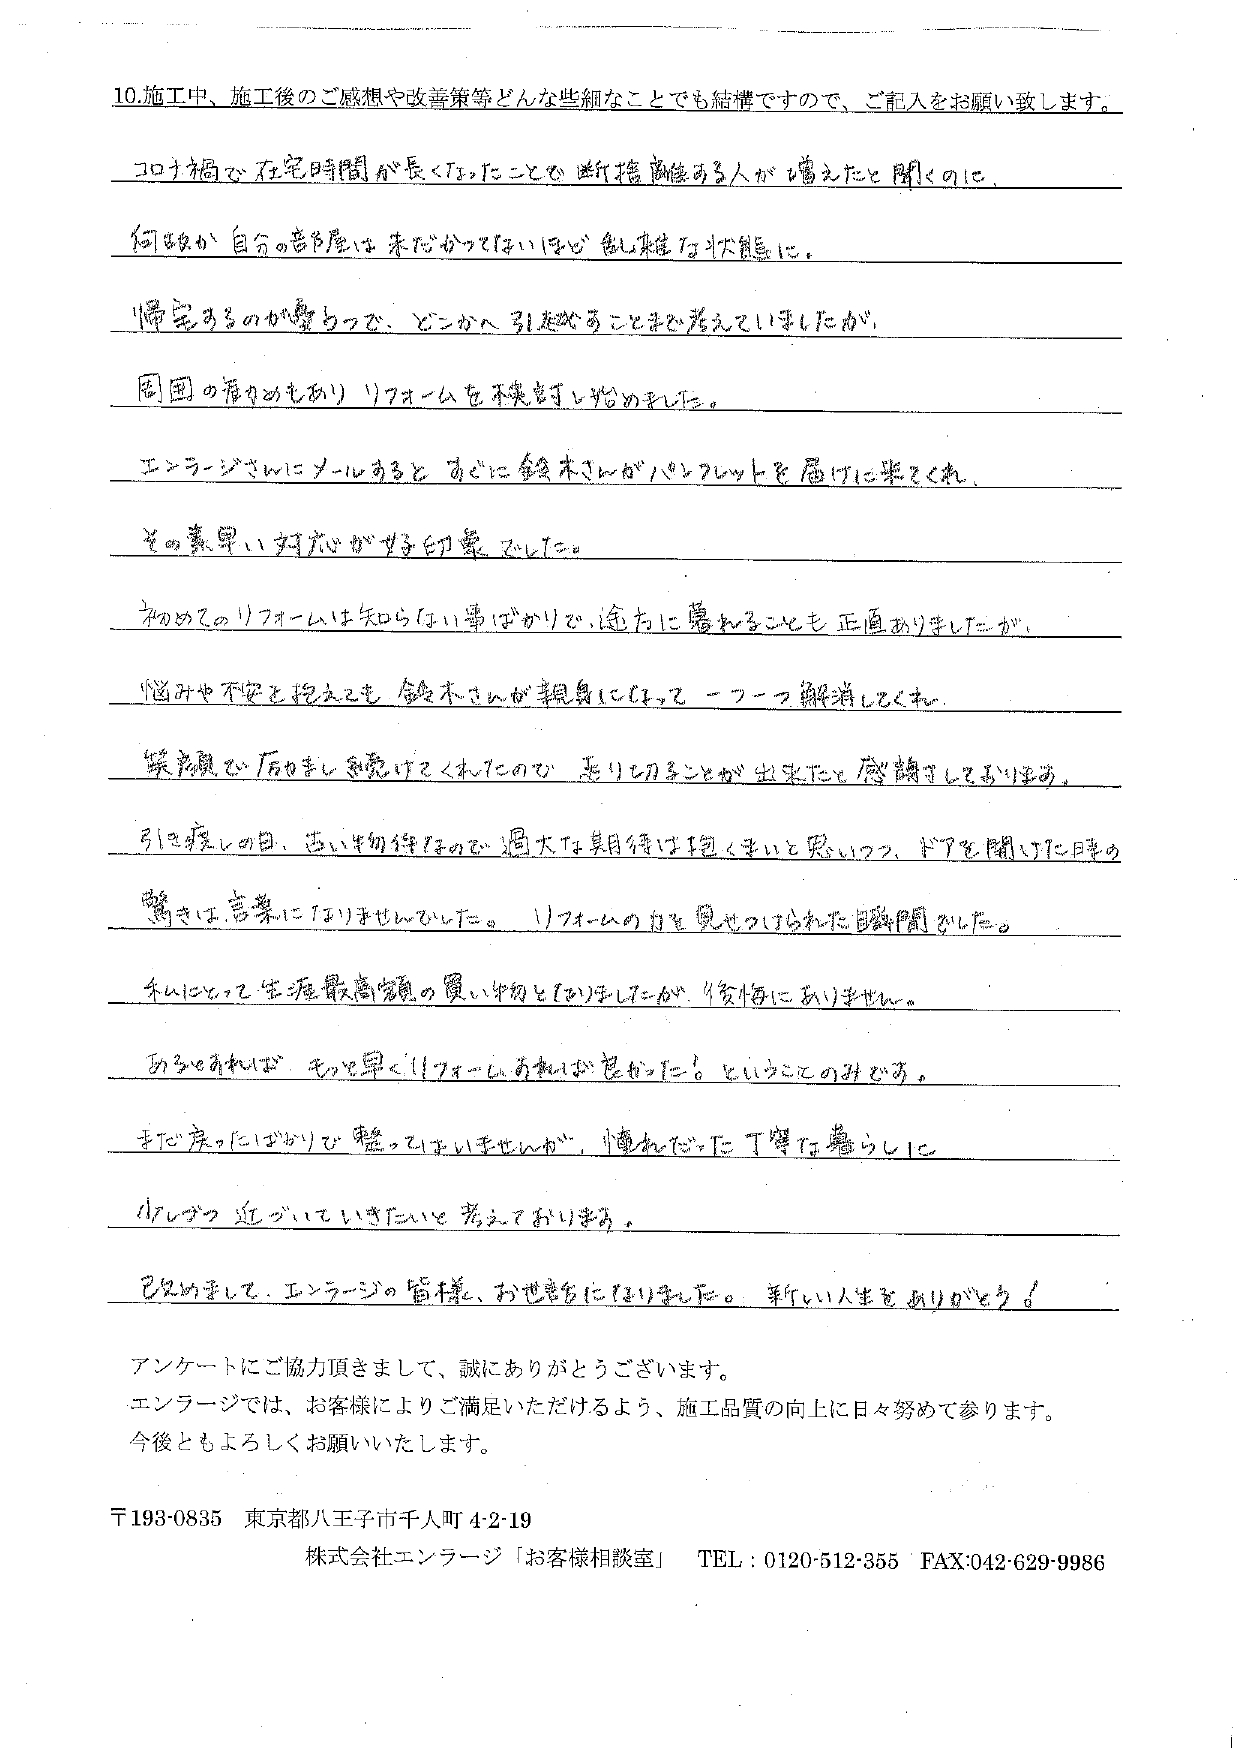 10.施工中、施工後のご感想や改善策等どんな些細なことでも結構ですので、ご記入をお願い致します。
コロナ禍で在宅時間が長くなったことで断捨離する人が増えたと聞くのに、
何故か自分の部屋は未だかつてないほど乱雑な状態に。
帰宅するのが憂うつで、どこかへ引越すことまで考えていましたが、
周囲の薦めもありリフォームを検討し始めました。
エンラージさんにメールするとすぐに鈴木さんがパンフレットを届けに来てくれ、
その素早い対応が好印象でした。
初めてのリフォームは知らない事ばかりで、途方に暮れることも正直ありましたが、
悩みや不安を抱えても鈴木さんが親身になって一つ一つ解消してくれ
笑顔で励まし続けてくれたので乗り切ることが出来たと感謝しております。
引き渡しの日、古い物件なので過大な期待は抱くまいと思いつつ、ドアを開けた時の
驚きは言葉になりませんでした。リフォームの力を見せつけられた瞬間でした。
私にとって生涯最高額の買い物となりましたが、後悔はありません。
あるとすれば、もっと早くリフォームすれば良かった!ということのみです。
まだ戻ったばかりで整ってはいませんが、憧れだった丁寧な暮らしに
少しづつ近づいていきたいと考えております。
改めまして、エンラージの皆様、お世話になりました。新しい人生をありがとう!
アンケートにご協力頂きまして、誠にありがとうございます。
エンラージでは、お客様によりご満足いただけるよう、施工品質の向上に日々努めて参ります。
今後ともよろしくお願いいたします。
〒193-0835 東京都八王子市千人町 4-2-19
株式会社エンラージ「お客様相談室」 TEL:0120-512-355 FAX:042-629-9986